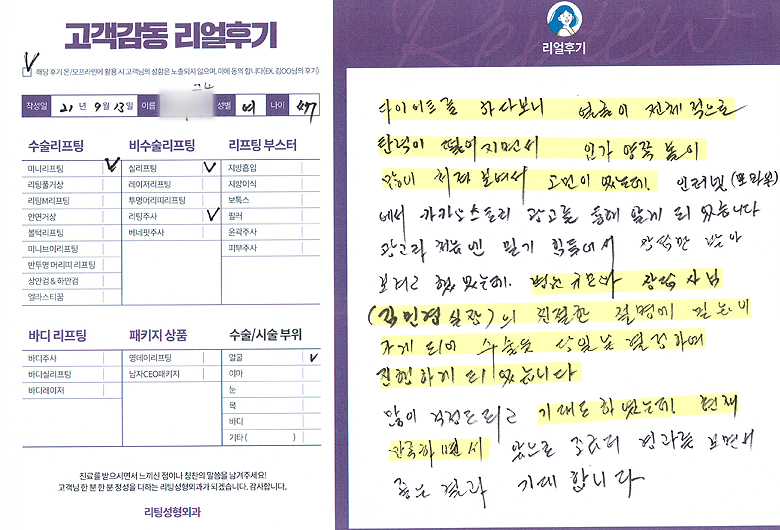 고객감동 리얼후기
해당 후기 온/오프라인에 활용 시 고객님의 성함은 노출되지 않으며, 이에 동의 합니다(EX. 김OO님의 후기)
작성일 21 년 9 월 13 일 이름 성별 여 나이 47
수술리프팅
미니리프팅
리팅풀거상
리팅M리프팅
안면거상
볼턱리프팅
미니브이리프팅
반투명 머리띠 리프팅
상안검 & 하안검
엘라스티꿈
비수술리프팅
실리프팅
레이저리프팅
투명머리띠리프팅
리팅주사
베네핏주사
리프팅 부스터
지방흡입
지방이식
보톡스
필러
윤곽주사
피부주사
바디 리프팅
바디주사
바디실리프팅
바디레이저
패키지 상품
영데이리프팅
남자CEO패키지
수술/시술 부위
얼굴
이마
눈
목
바디
기타 ( )
진료를 받으시면서 느끼신 점이나 칭찬의 말씀을 남겨주세요!
고객님 한 분 한 분 정성을 다하는 리팅성형외과가 되겠습니다. 감사합니다.
리팅성형외과
Review
리얼후기
다이어트를 하다보니 얼굴이 전체적으로
탄력이 떨어지면서 인가 양쪽 볼이
많이 쳐져 보여서 고민이 있는데. 인터넷
에서 카카오스토리 광고를 통해 알게 되었습니다
광고라 처음엔 믿기 힘들어서 상담만 받아
보려고 했었는데. 병원 규모나 상담사님
(김민경 실장)의 친절한 설명에 믿음이
가게 되어 수술을 당일날 결정하여
진행하게 되었습니다
많이 걱정도되고 기대도 하였는데. 현재
만족하면서 앞으로 조금더 경과를 보면서
좋은 결과 기대합니다